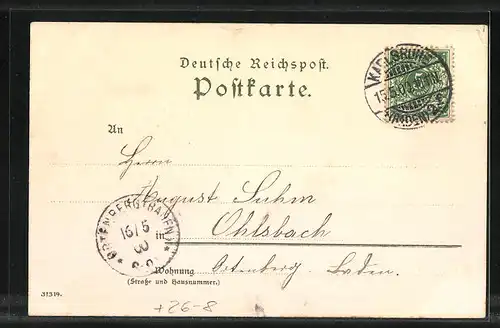 Deutsche Reichspost.
Postkarte.
KARLSRUHE
15.5.00
(BADEN)
An
Herrn
August Suhm
in Ohlsbach
ORTENBERG (BADEN)
16/5
00
8-9
Wohnung Ortenberg. Baden.
(Straße und Hausnummer.)
31514.
+26-8